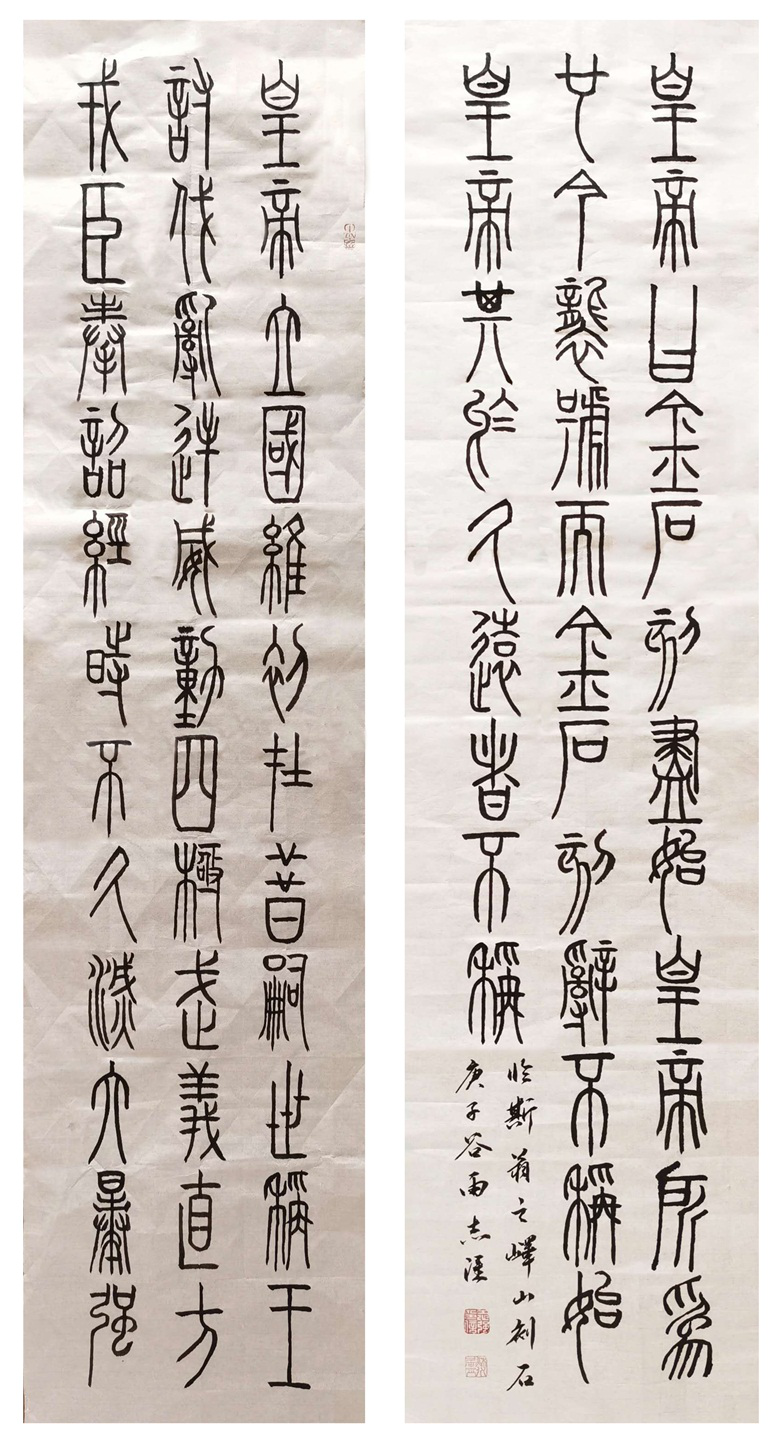 皇帝立國維初在昔嗣世稱王
討伐亂逆威動四極武義直方
戎臣奉詔經時不久滅六暴强
皇帝曰金石刻盡始皇帝所為
也今襲號而金石刻辭不稱始
皇帝其於久遠者不稱
臨斯翁之嶧山刻石
庚子谷雨志